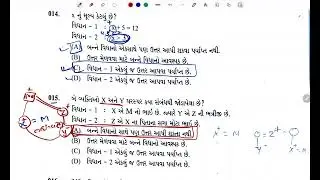 014. x નું મૂલ્ય કેટલું છે?
વિધાન - 1 : x + 5 = 12
વિધાન - 2 :
(A) બન્ને વિધાનો એકસાથે પણ ઉત્તર આપી શકવા પર્યાપ્ત નથી.
(B) ઉત્તર મેળવવા માટે બન્ને વિધાનો આવશ્યક છે.
(C) વિધાન - 1 એકલું જ ઉત્તર આપવા પર્યાપ્ત છે.
(D) વિધાન - 2 એકલું જ ઉત્તર આપવા પર્યાપ્ત છે.
015. બે વ્યક્તિઓ X અને Y પરસ્પર કયા સંબંધથી જોડાયેલા છે?
વિધાન - 1 : X એ M નો ભાઈ છે. જ્યારે Y એ Z ની ભત્રીજી છે.
વિધાન - 2 : Z એ X ના પિતાના સગા મોટા ભાઈ છે.
(A) બન્ને વિધાનો સાથે પણ ઉત્તર આપી શકાતો નથી.
(B) ઉત્તર મેળવવા માટે બન્ને વિધાનો આવશ્યક છે.
(C) વિધાન - 1 એકલું જ ઉત્તર આપવા પર્યાપ્ત છે.
(D) વિધાન - 2 એકલું જ ઉત્તર આપવા પર્યાપ્ત છે.
= M
X⁺ = M
Y⁻